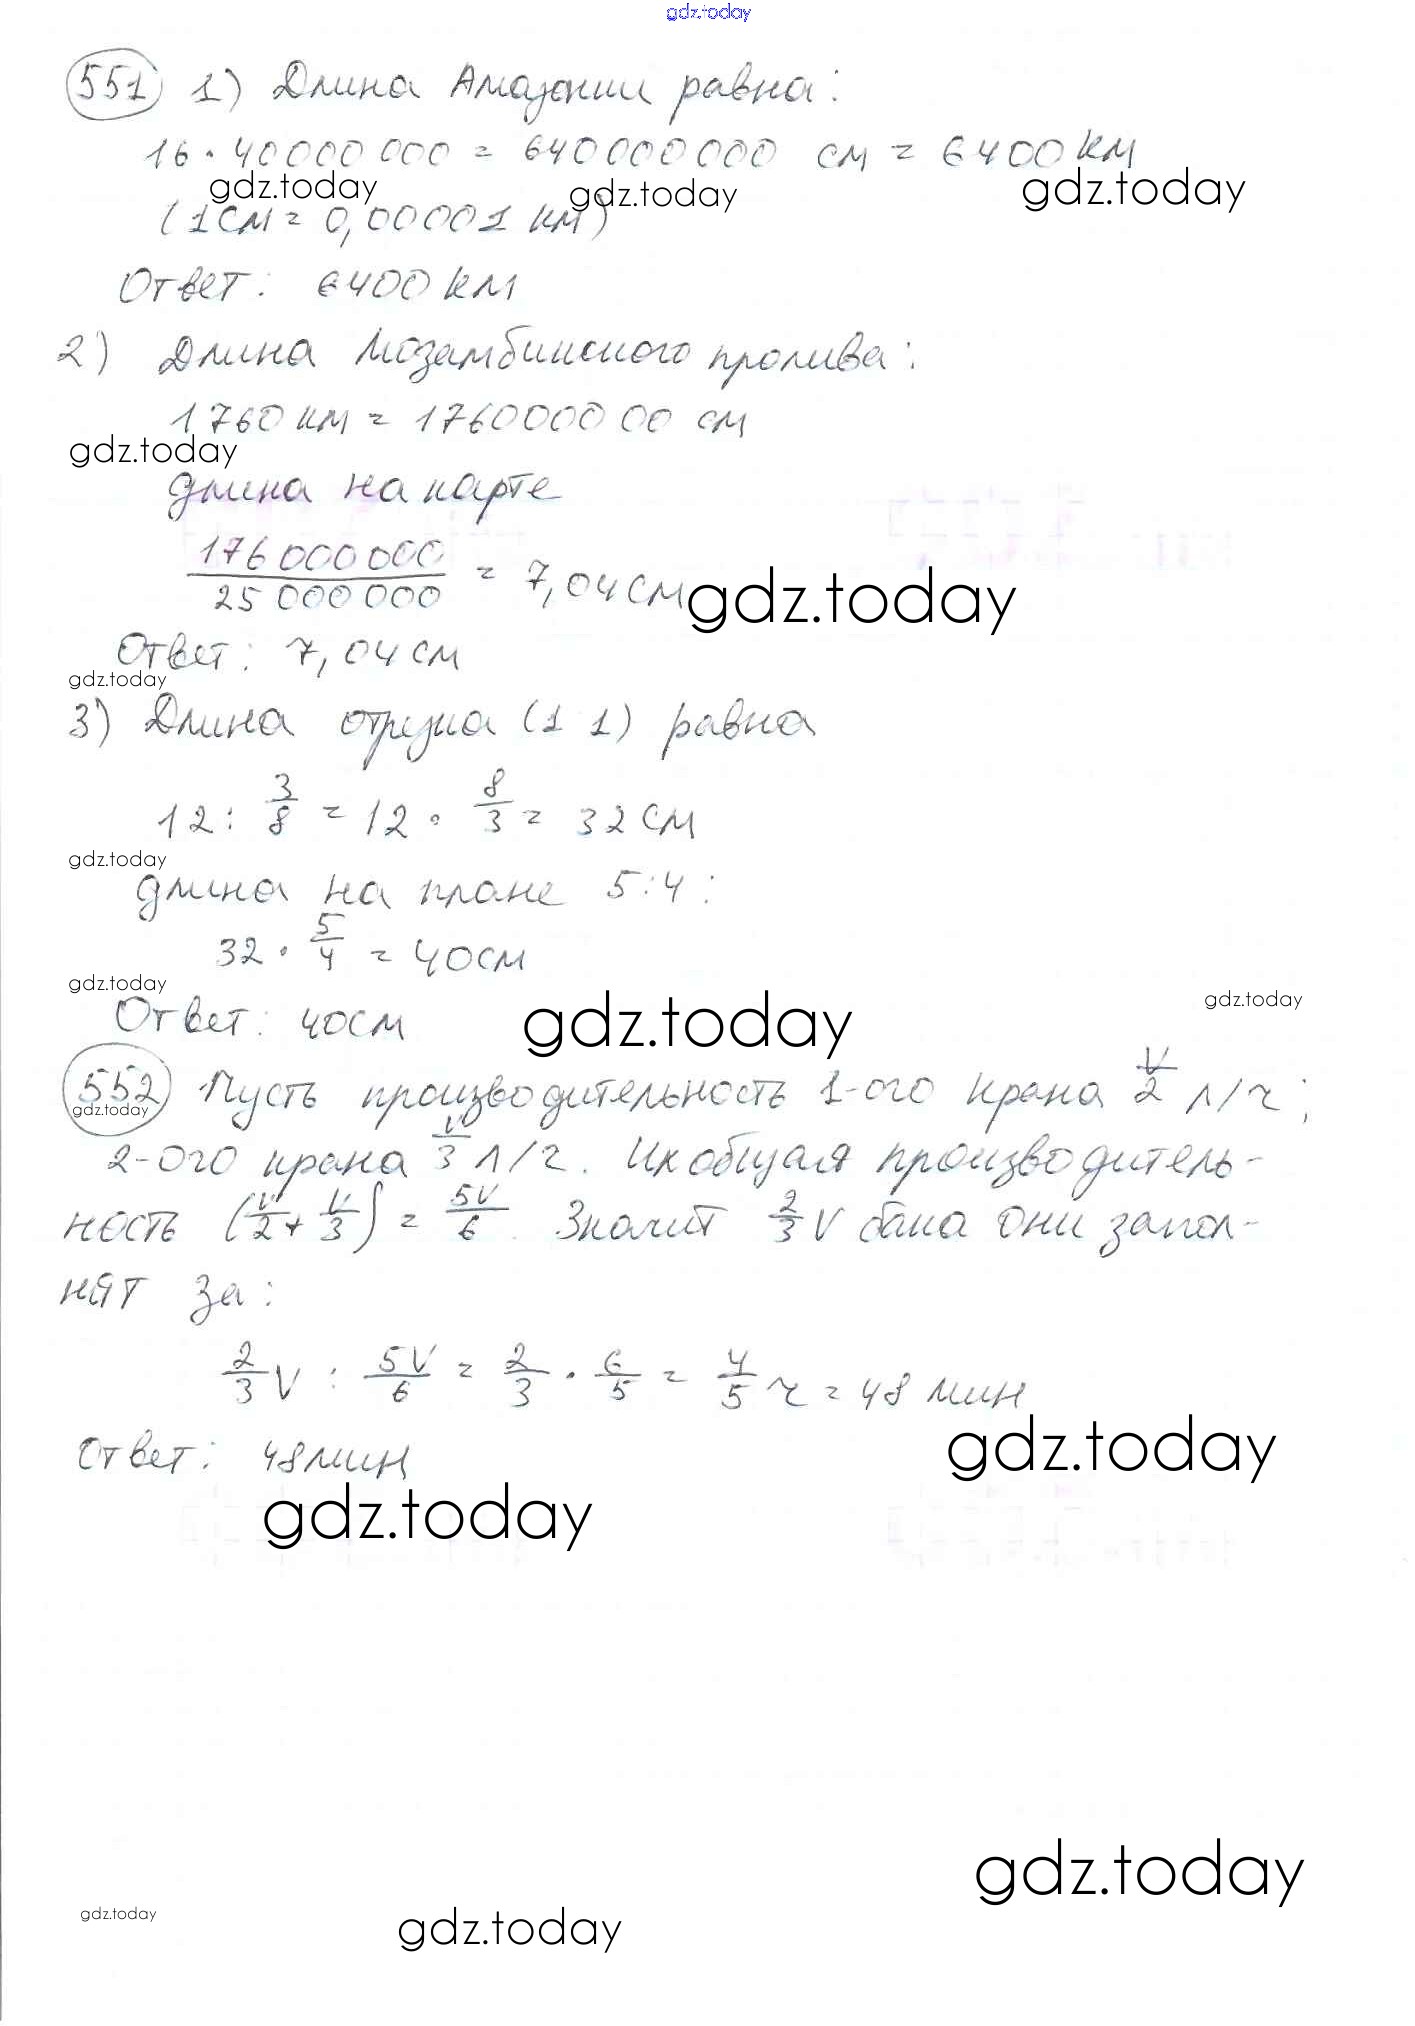 gdz.today
551 1) Длина Амазонии равна:
16 · 40000 000 = 640000000 см = 6400 км
gdz.today gdz.today gdz.today
(1 см = 0,00001 км)
Ответ: 6400 км
2) Длина Мозамбикского пролива:
1760 км = 176000000 см
gdz.today
длина на карте
176 000 000 / 25 000 000 = 7,04 см
gdz.today
Ответ: 7,04 см
gdz.today
3) Длина отрезка (1 1) равна
12 : 3/8 = 12 · 8/3 = 32 см
gdz.today
длина на плане 5:4:
32 · 5/4 = 40 см
gdz.today gdz.today
Ответ: 40 см gdz.today
552 Пусть производительность 1-ого крана V/2 л/ч;
gdz.today
2-ого крана V/3 л/ч. Их общая производитель-
ность (V/2 + V/3) = 5V/6. Значит 2/3 V бака они запол-
нят за:
2/3 V : 5V/6 = 2/3 · 6/5 = 4/5 ч = 48 мин
gdz.today
Ответ: 48 мин
gdz.today
gdz.today
gdz.today gdz.today